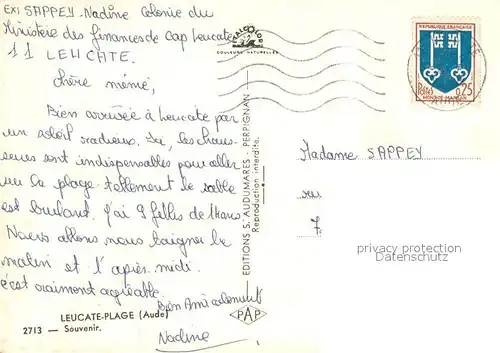 EXI SAPPEY-Nadine Colonie du
Ministère des finances de Cap Leucate
11 LEUCATE.
Chère mémé,
Bien arrivée à Leucate par
un soleil radieux. Ici, les chaus-
sures sont indispensables pour aller
sur la plage tellement le sable
est brulant. J'ai 9 filles de
Nous allons nous baigner le
matin et l'après-midi.
c'est vraiment agréable.
Bien Amicalement
Nadine
LEUCATE-PLAGE (Aude)
2713 — Souvenir.
COULEURS NATURELLES
EDITIONS S. AUDUMARES - PERPIGNAN
Reproduction interdite.
PAP
REPUBLIQUE FRANÇAISE
Postes
0,25
MONT-DE-MARSAN
Madame SAPPEY
7.
privacy protection
Datenschutz